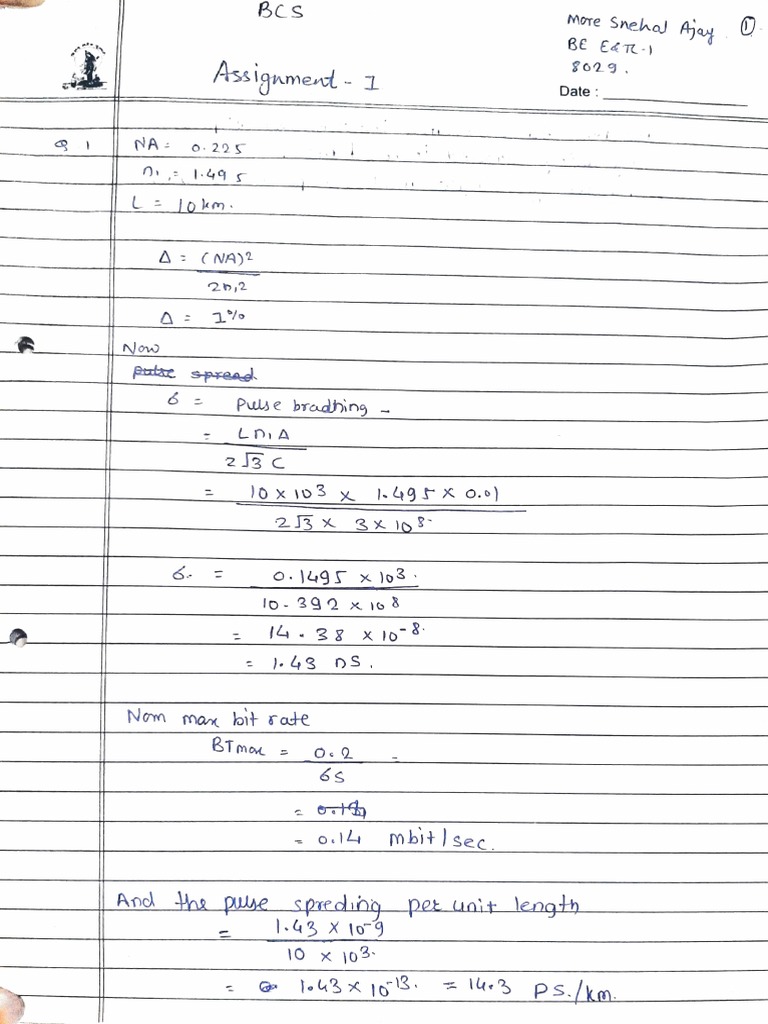 BCS
More Snehal Ajay ①
BE E&TC-1
8029.
Assignment - 1
Date :
Q 1 NA = 0.225
n₁ = 1.495
L = 10 km.
Δ = (NA)2
2n₁2
Δ = 1%
Now
pulse spread
6 = Pulse bradhing -
= Ln₁Δ
2√3 C
= 10 × 10³ × 1.495 × 0.01
2√3 × 3 × 10⁸.
6. = 0.1495 × 10³.
10.392 × 10⁸
= 14.38 × 10⁻⁸.
= 1.43 ns.
Nom max bit rate
BTmax = 0.2 =
6s
= 0.14 mbit/sec.
And the pulse spreding per unit length
= 1.43 × 10⁻⁹
10 × 10³.
= 1.43 × 10⁻¹³. = 14.3 PS./km.